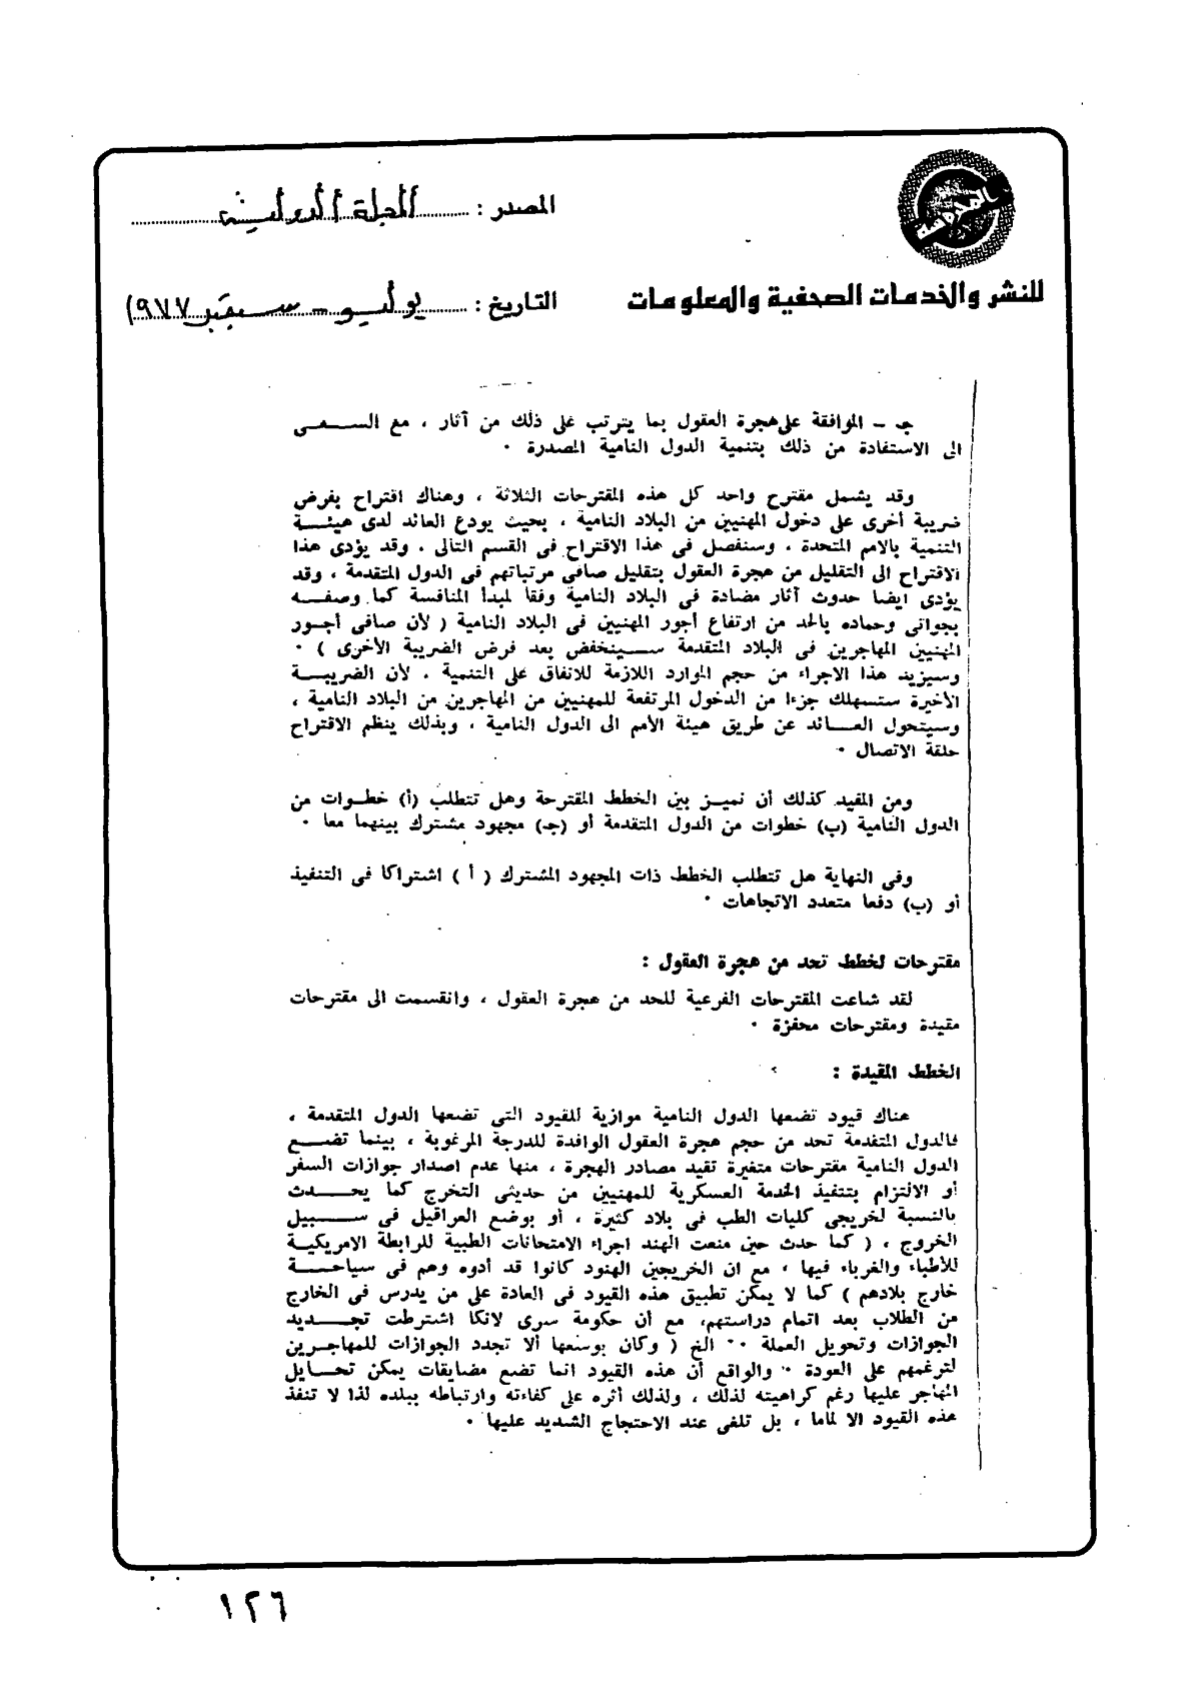 المصدر : المجلة الدولية
التاريخ : يوليو - سبتمبر ١٩٧٧
للنشر والخدمات الصحفية والمعلومات
جـ - الموافقة على هجرة العقول بما يترتب على ذلك من آثار ، مع السعى
الى الاستفادة من ذلك بتنمية الدول النامية المصدرة .
وقد يشمل مقترح واحد كل هذه المقترحات الثلاثة ، وهناك اقتراح بفرض
ضريبة أخرى على دخول المهنيين من البلاد النامية ، بحيث يودع العائد لدى هيئة
التنمية بالامم المتحدة . وسنفصل فى هذا الاقتراح فى القسم التالى . وقد يؤدى هذا
الاقتراح الى التقليل من هجرة العقول بتقليل صافى مرتباتهم فى الدول المتقدمة ، وقد
يؤدى ايضا حدوث آثار مضادة فى البلاد النامية وفقا لمبدأ المنافسة كما وصفه
بجواتى وحماده بالحد من ارتفاع أجور المهنيين فى البلاد النامية ( لأن صافى أجور
المهنيين المهاجرين فى البلاد المتقدمة سينخفض بعد فرض الضريبة الأخرى ) .
وسيزيد هذا الاجراء من حجم الموارد اللازمة للانفاق على التنمية . لأن الضريبة
الأخيرة ستستهلك جزءا من الدخول المرتفعة للمهنيين من المهاجرين من البلاد النامية ،
وسيتحول العائد عن طريق هيئة الأمم الى الدول النامية ، وبذلك ينظم الاقتراح
حلقة الاتصال .
ومن المفيد كذلك أن نميز بين الخطط المقترحة وهل تتطلب (أ) خطوات من
الدول النامية (ب) خطوات من الدول المتقدمة أو (جـ) مجهود مشترك بينهما معا .
وفى النهاية هل تتطلب الخطط ذات المجهود المشترك ( أ ) اشتراكا فى التنفيذ
أو (ب) دفعا متعدد الاتجاهات .
مقترحات لخطط تحد من هجرة العقول :
لقد شاعت المقترحات الفرعية للحد من هجرة العقول ، وانقسمت الى مقترحات
مقيدة ومقترحات محفزة .
الخطط المقيدة :
هناك قيود تضعها الدول النامية موازية للقيود التى تضعها الدول المتقدمة ،
فالدول المتقدمة تحد من حجم هجرة العقول الوافدة للدرجة المرغوبة ، بينما تضع
الدول النامية مقترحات متغيرة تقيد مصادر الهجرة ، منها عدم اصدار جوازات السفر
أو الالتزام بتنفيذ الخدمة العسكرية للمهنيين من حديثى التخرج كما يحدث
بالنسبة لخريجى كليات الطب فى بلاد كثيرة ، أو بوضع العراقيل فى سبيل
الخروج ، ( كما حدث حين منعت الهند اجراء الامتحانات الطبية للرابطة الامريكية
للأطباء والغرباء فيها ، مع ان الخريجين الهنود كانوا قد أدوه وهم فى سياحة
خارج بلادهم ) كما لا يمكن تطبيق هذه القيود فى العادة على من يدرس فى الخارج
من الطلاب بعد اتمام دراستهم، مع أن حكومة سرى لانكا اشترطت تجديد
الجوازات وتحويل العملة .. الخ ( وكان بوسعها ألا تجدد الجوازات للمهاجرين
لترغمهم على العودة . والواقع أن هذه القيود انما تضع مضايقات يمكن تحايل
المهاجر عليها رغم كراهيته لذلك ، ولذلك أثره على كفاءته وارتباطه ببلده لذا لا تنفذ
هذه القيود الا لماما ، بل تلغى عند الاحتجاج الشديد عليها .
١٢٦